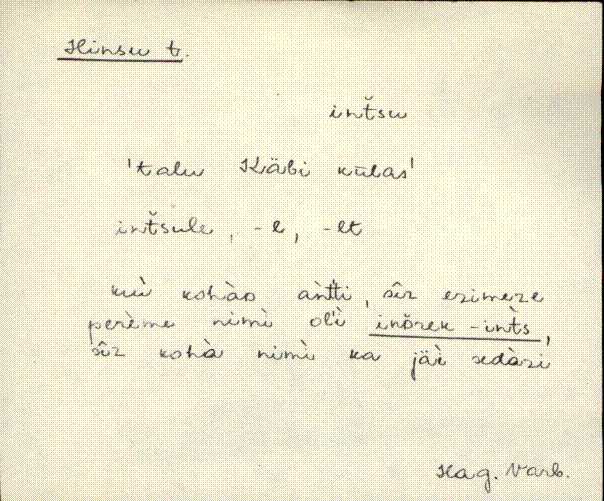 Hinsu t.
intšu
'talu Käbi külas'
intšule, -e, -et
kuì kohào àntti, sîz ezimeze
perème nimì ol'ì inðrek-ìnts,
sîz kohà nimì ka jäì sedàzi
Hag. Varb.